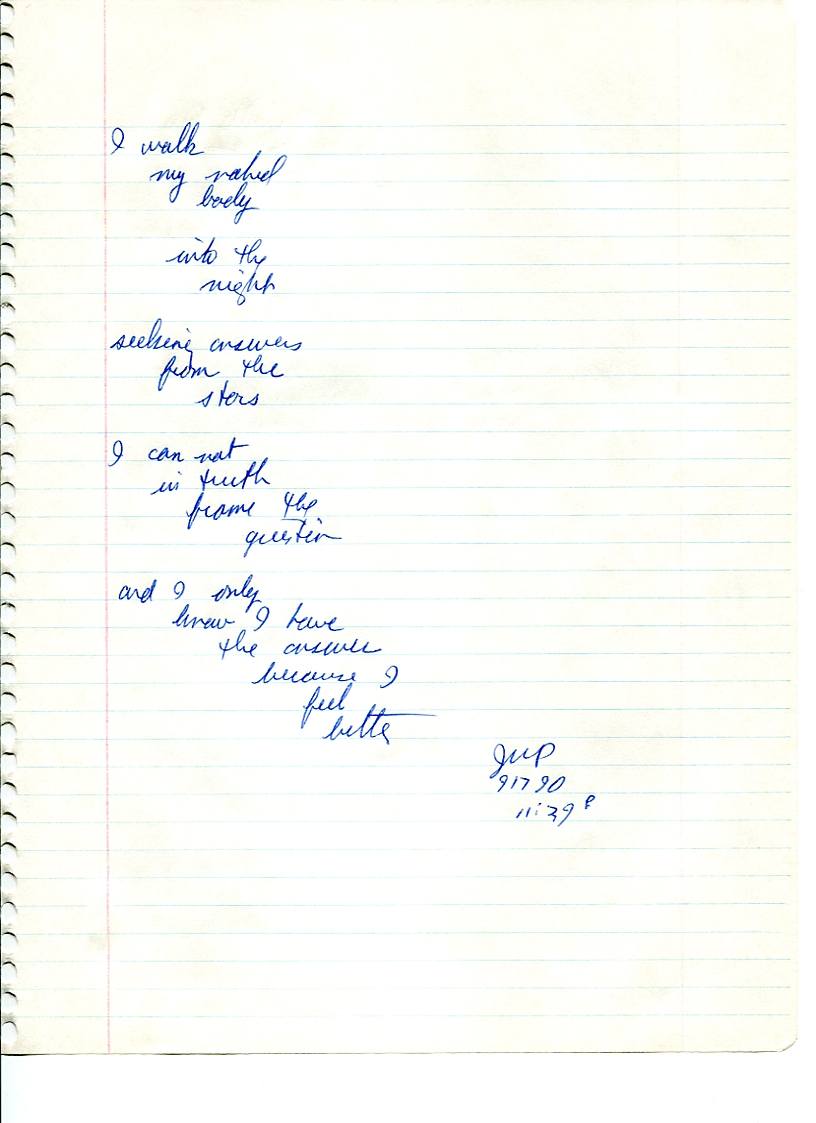 I walk
my naked
body
into the
night
seeking answers
from the
stars
I can not
in truth
frame the
question
and I only
know I have
the answer
because I
feel
better
91790
11:39 P